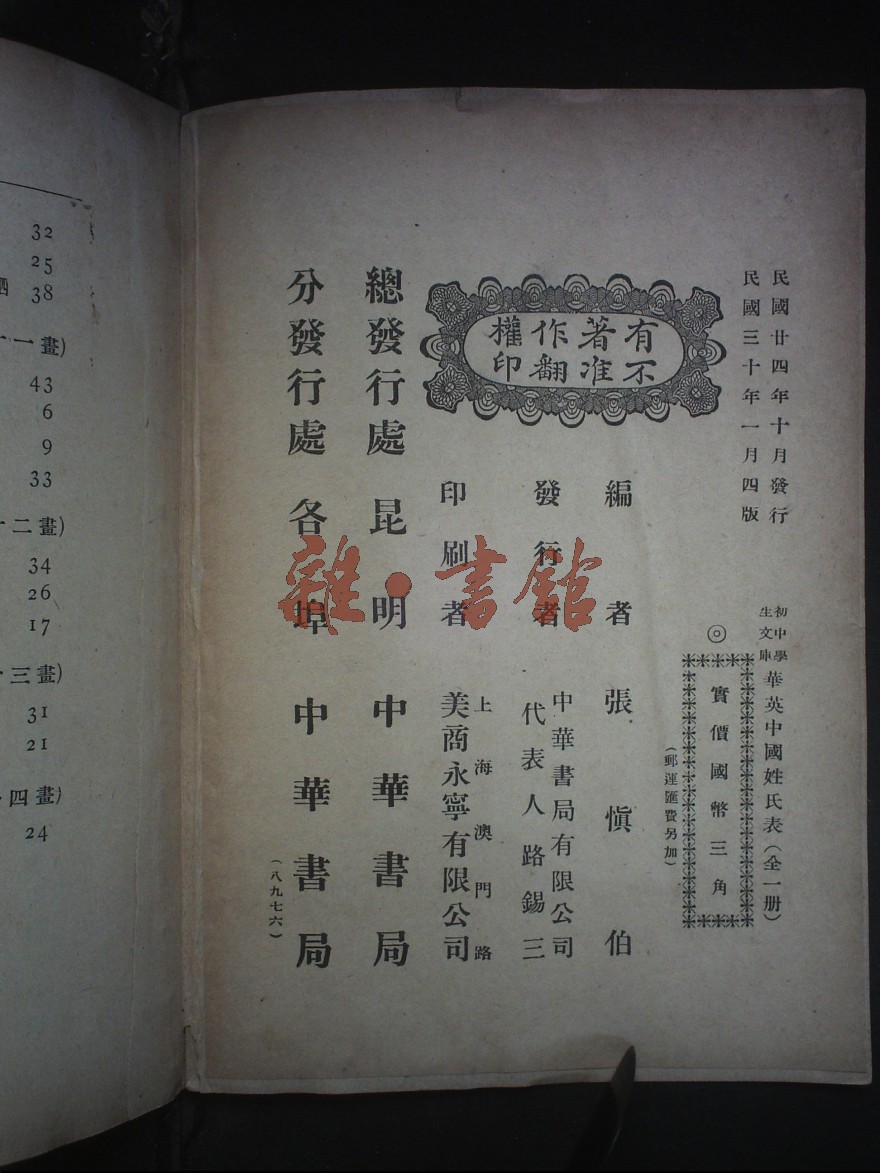 民國廿四年十月發行
民國三十年一月四版
初中學
生文庫
華英中國姓氏表（全一册）
◎
實價國幣三角
（郵運匯費另加）
有不
著准
作翻
權印
編者 張慎伯
發行者 中華書局有限公司
代表人路錫三
印刷者 上海澳門路
美商永寧有限公司
總發行處 昆明 中華書局
分發行處 各埠 中華書局
（八九七六）
雜·書館
32
25
38
一畫）
43
6
9
33
二畫）
34
26
17
三畫）
31
21
四畫）
24